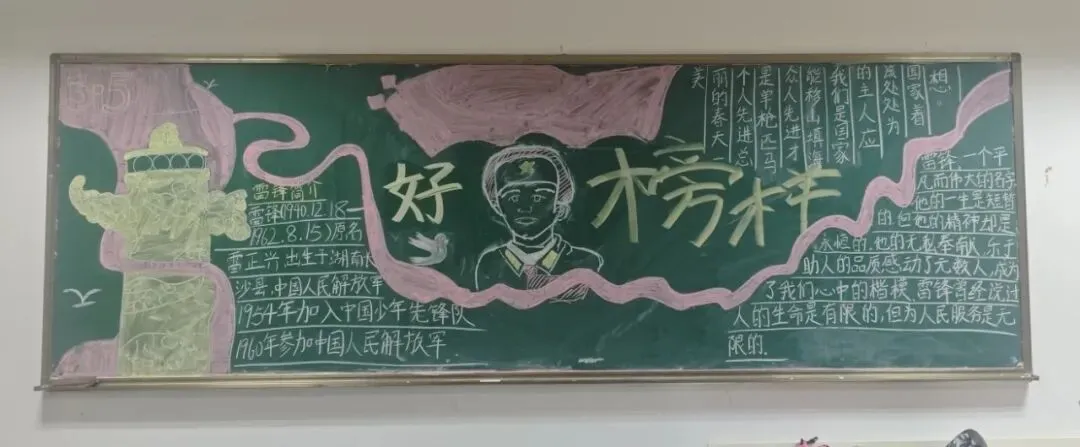 好榜样
雷锋简介
雷锋(1940.12.18—
1962.8.15)原名
雷正兴,出生于湖南长
沙县,中国人民解放军
1954年加入中国少年先锋队
1960年参加中国人民解放军
美
丽的春天一
个人先进总
是单枪匹马
众人先进才
能移山填海
我们是国家
的主人应
该处处为
国家着
想。
雷锋,一个平
凡而伟大的名字
他的一生是短暂
的,但他的精神却是
永恒的.他的无私奉献、乐于
助人的品质感动了无数人,成为
了我们心中的楷模.雷锋曾经说过
人的生命是有限的,但为人民服务是无
限的.